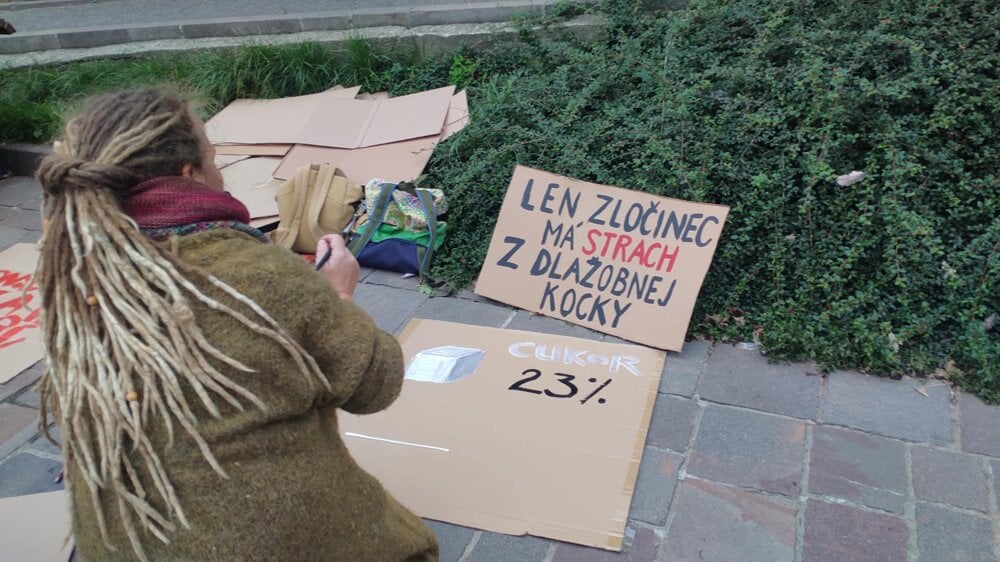 LEN ZLOČINEC
MÁ STRACH
Z DLAŽOBNEJ
KOCKY
CUKOR
23%